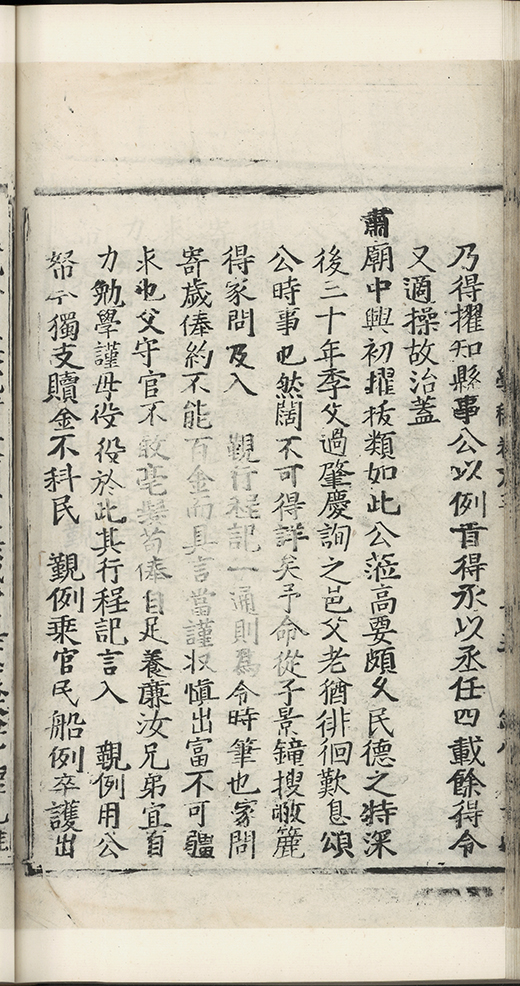 乃得擢知縣事公以例首得丞以丞任四載餘得令
又適操故治蓋
肅廟中興初擢拔類如此公蒞高要頗久民德之特深
後二十年季父過肇慶詢之邑父老猶徘徊歎息頌
公時事也然闊不可得詳矣予命從子景鐘搜敝簏
得家問及入 覲行程記一通則為令時筆也家問
寄歲俸約不能百金而具言當謹收慎出富不可彊
求也父守官不敢毫髮苟俸自足養廉汝兄弟宜自
力勉學謹毋役役於此其行程記言入 覲例用公
帑 獨支贖金不科民 覲例乘官民船例卒護出